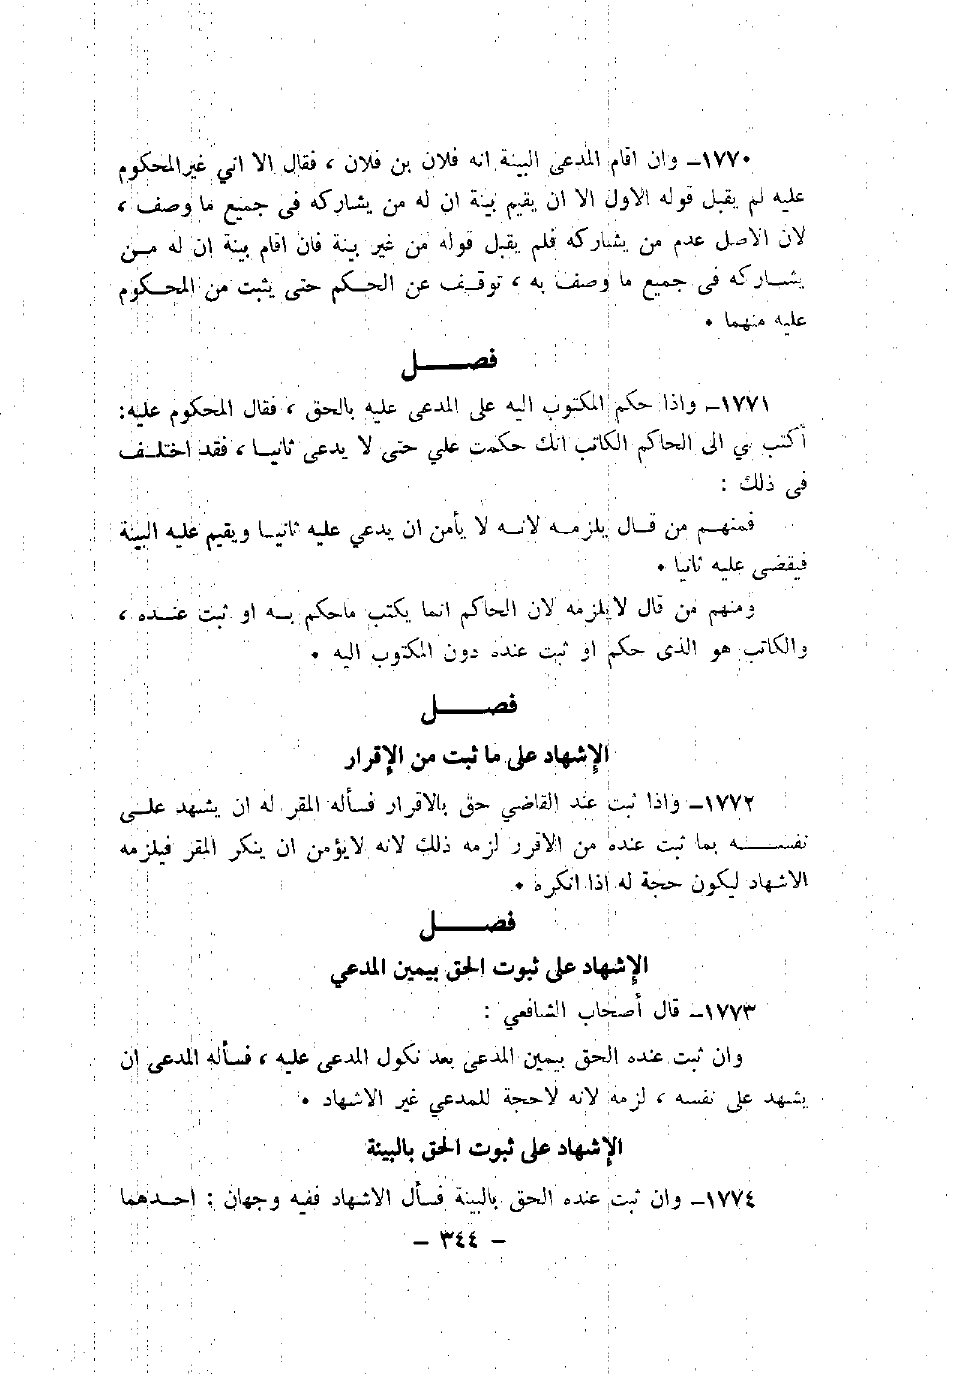 ١٧٧٠ـ وان اقام المدعى البينة انه فلان بن فلان ، فقال الا اني غيرالمحكوم
عليه لم يقبل قوله الاول الا ان يقيم بينة ان له من يشاركه فى جميع ما وصف ،
لان الاصل عدم من يشاركه فلم يقبل قوله من غير بينة فان اقام بينة ان له مـن
يشـاركه فى جميع ما وصف به ، توقـف عن الحـكم حتى يثبت من المحـكوم
عليه منهما •
فصـــل
١٧٧١ـ واذا حكم المكتوب اليه على المدعى عليه بالحق ، فقال المحكوم عليه:
أكتب بي الى الحاكم الكاتب انك حكمت علي حتى لا يدعى ثانيـا ، فقد اختلـف
فى ذلك :
فمنهـم من قـال يلزمـه لانـه لا يأمن ان يدعي عليه ثانيـا ويقيم عليه البينة
فيقضى عليه ثانيا •
ومنهم من قال لايلزمه لان الحاكم انما يكتب ماحكم بـه او ثبت عنـده ،
والكاتب هو الذى حكم او ثبت عنده دون المكتوب اليه •
فصـــل
الإشهاد على ما ثبت من الإقرار
١٧٧٢ـ واذا ثبت عند القاضي حق بالاقرار فسأله المقر له ان يشهد علـى
نفســـه بما ثبت عنده من الاقرر لزمه ذلك لانه لايؤمن ان ينكر المقر فيلزمه
الاشهاد ليكون حجة له اذا انكره •
فصـــل
الإشهاد على ثبوت الحق بيمين المدعي
١٧٧٣ـ قال أصحاب الشافعي :
وان ثبت عنده الحق بيمين المدعى بعد نكول المدعى عليه ، فسأله المدعى ان
يشهد على نفسه ، لزمه لانه لاحجة للمدعي غير الاشهاد •
الإشهاد على ثبوت الحق بالبينة
١٧٧٤ـ وان ثبت عنده الحق بالبينة فسأل الاشهاد ففيه وجهان : احـدهما
ـ ٣٤٤ ـ